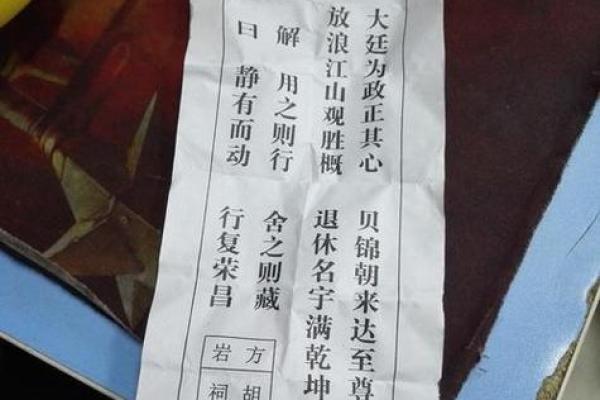 大廷为政正其心 贝锦朝来达至尊
放浪江山观胜概 退休名宇满乾坤
解 用之则行 舍之则藏
曰 静有而动 行复荣昌
方胡
岩祠